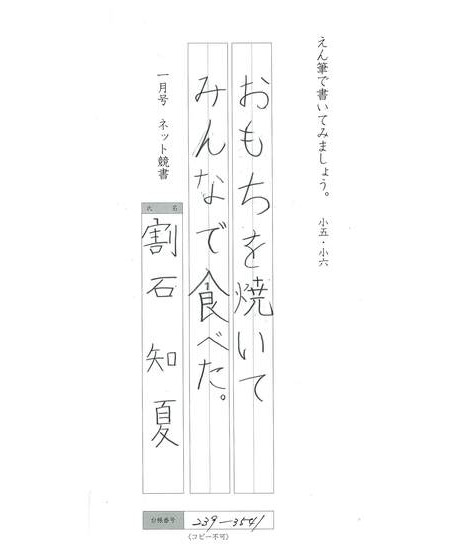 えん筆で書いてみましょう。 小五・小六
おもちを焼いて
みんなで食べた。
一月号 ネット競書
氏名
割石 知夏
台帳番号 239-3541
(コピー不可)